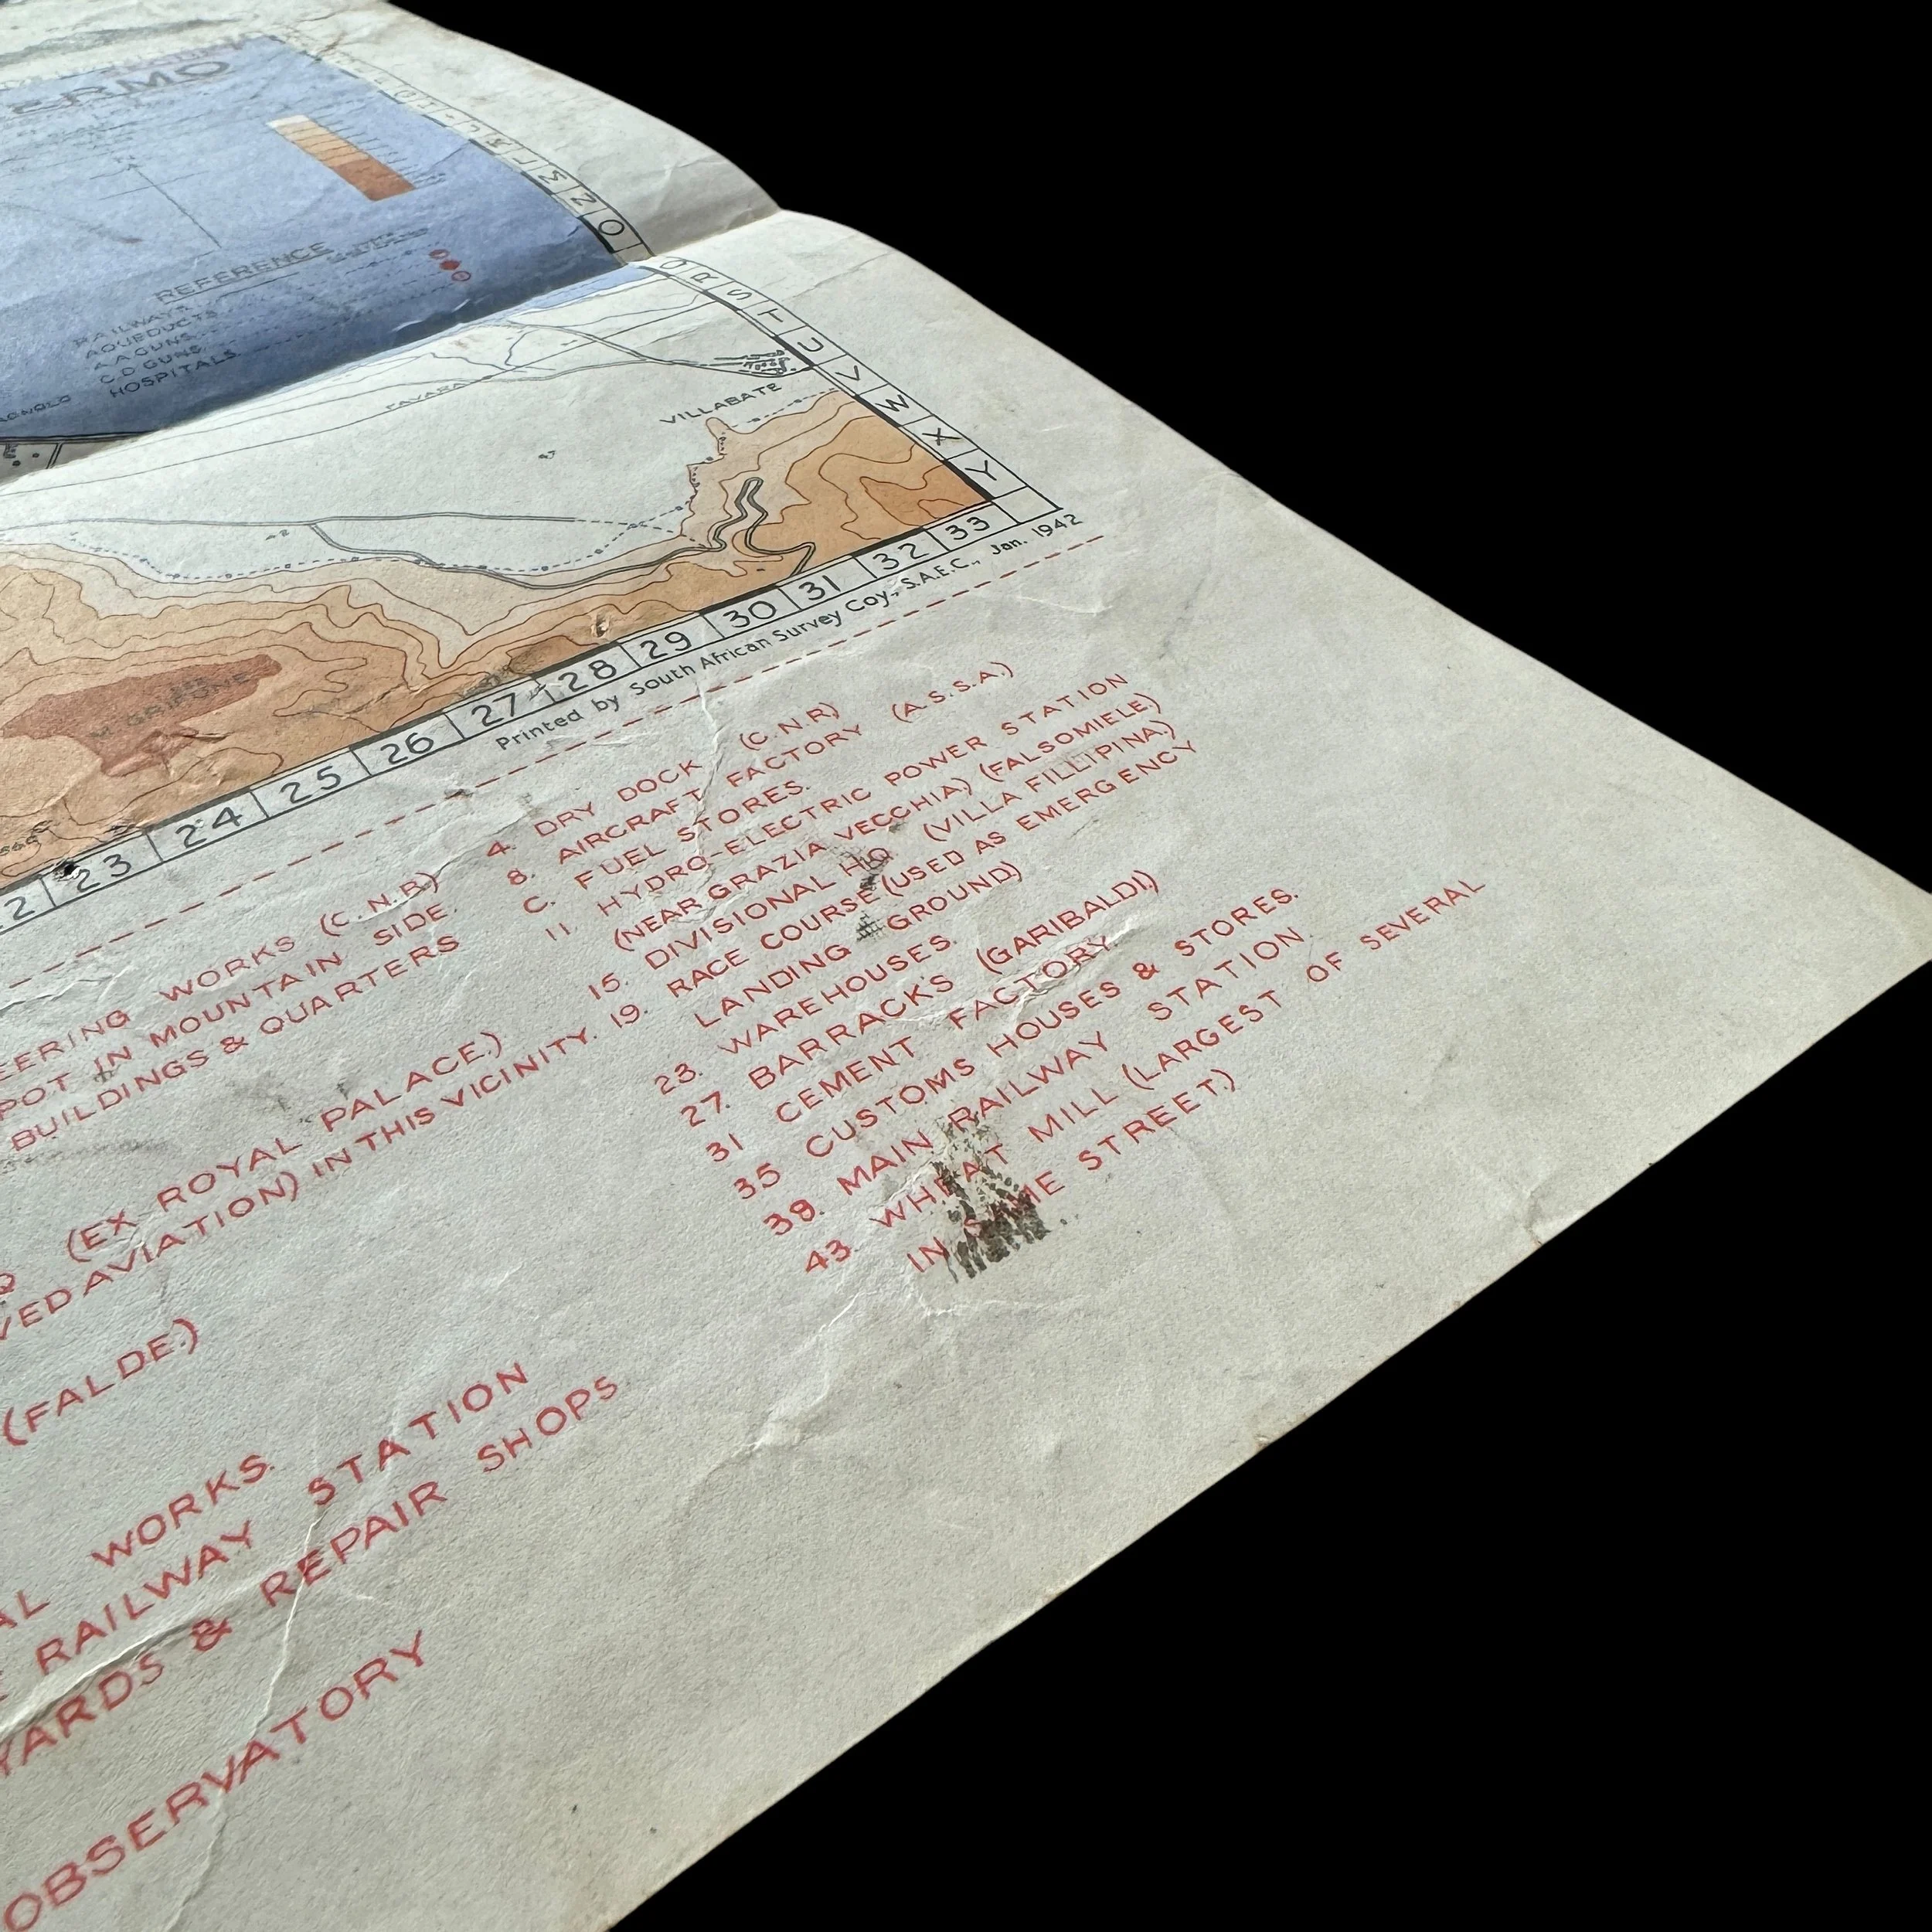 ERMO
REFERENCE
RAILWAYS
AQUEDUCTS
A.A GUNS
C.D GUNS
HOSPITALS
K
L
M
N
O
Q
R
S
T
U
V
W
X
Y
FAVARA
VILLABATE
M. GRIFONE
2 23 24 25 26 27 28 29 30 31 32 33
Printed by South African Survey Coy., S.A.E.C., Jan. 1942
EERING WORKS (C.N.R)
POT IN MOUNTAIN SIDE.
BUILDINGS & QUARTERS
(EX ROYAL PALACE.)
VED AVIATION) IN THIS VICINITY.
(FALDE.)
AL WORKS.
RAILWAY STATION
YARDS & REPAIR SHOPS
OBSERVATORY
4. DRY DOCK (C.N.R)
8. AIRCRAFT FACTORY (A.S.S.A.)
C. FUEL STORES.
11. HYDRO-ELECTRIC POWER STATION
(NEAR GRAZIA VECCHIA) (FALSOMIELE.)
15. DIVISIONAL HQ (VILLA FILLIPINA.)
19. RACE COURSE (USED AS EMERGENCY
LANDING GROUND)
23. WAREHOUSES.
27. BARRACKS (GARIBALDI.)
31 CEMENT FACTORY.
35 CUSTOMS HOUSES & STORES.
39. MAIN RAILWAY STATION.
43. WHEAT MILL (LARGEST OF SEVERAL
IN SAME STREET.)